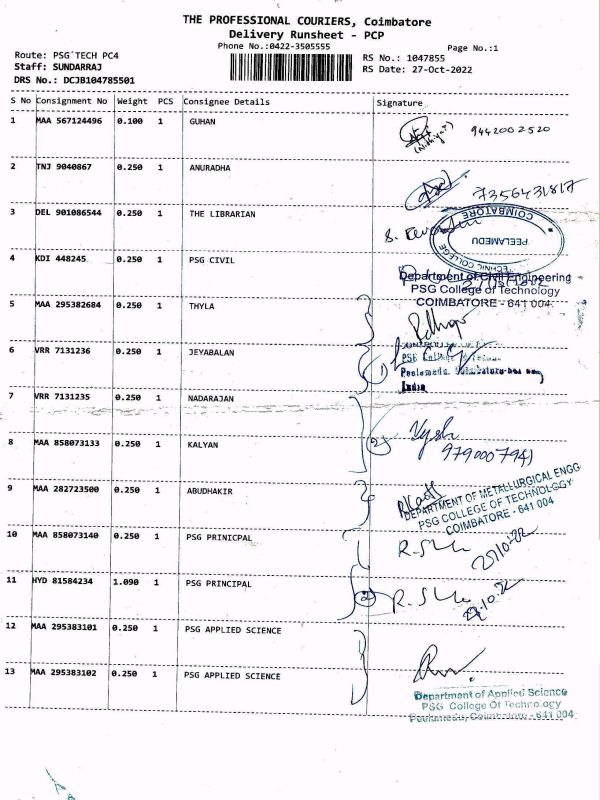 THE PROFESSIONAL COURIERS, Coimbatore
Delivery Runsheet - PCP
Phone No.:0422-3505555
Page No.:1
Route: PSG TECH PC4
RS No.: 1047855
Staff: SUNDARRAJ
RS Date: 27-Oct-2022
DRS No.: DCJB104785501
S No Consignment No Weight PCS Consignee Details Signature
1 MAA 567124496 0.100 1 GUHAN
9442002520
2 TNJ 9040867 0.250 1 ANURADHA
7356431817
3 DEL 901086544 0.250 1 THE LIBRARIAN
COIMBATORE
PEELAMEDU
4 KDI 448245 0.250 1 PSG CIVIL
Department of Civil Engineering
PSG College of Technology
COIMBATORE - 641 004
5 MAA 295382684 0.250 1 THYLA
6 VRR 7131236 0.250 1 JEYABALAN
1
PSG College
India
7 VRR 7131235 0.250 1 NADARAJAN
8 MAA 858073133 0.250 1 KALYAN
2
9790007941
9 MAA 282723500 0.250 1 ABUDHAKIR
DEPARTMENT OF METALLURGICAL ENGG
PSG COLLEGE OF TECHNOLOGY
COIMBATORE - 641 004
10 MAA 858073140 0.250 1 PSG PRINICPAL
27/10/22
11 HYD 81584234 1.090 1 PSG PRINCIPAL
2
12 MAA 295383101 0.250 1 PSG APPLIED SCIENCE
13 MAA 295383102 0.250 1 PSG APPLIED SCIENCE
Department of Applied Science
PSG College Of Technology
Peelamedu, Coimbatore - 641 004